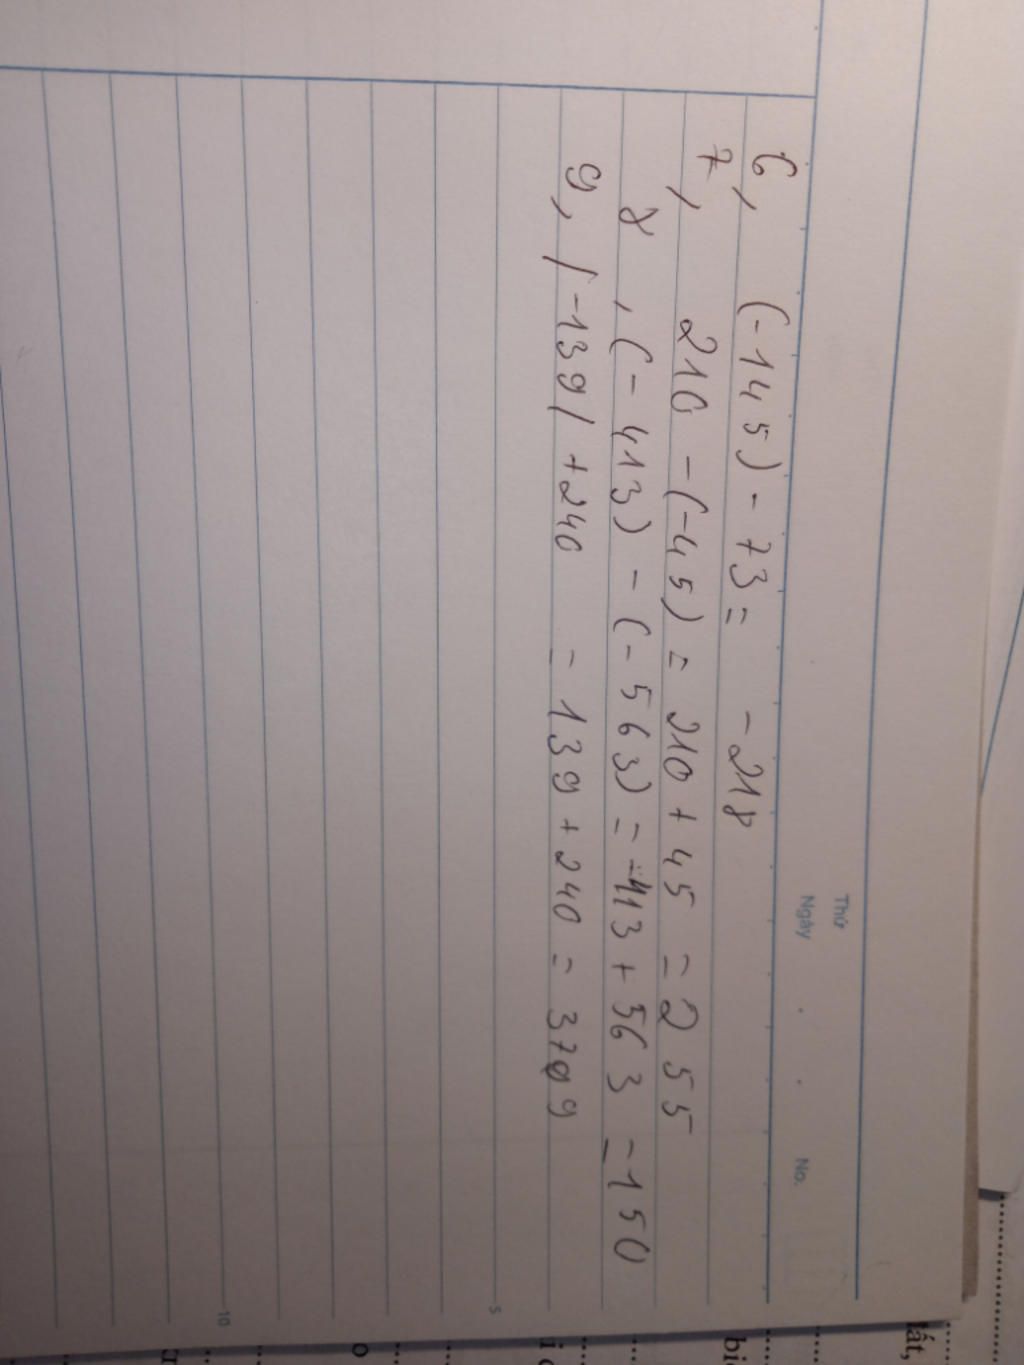 Thứ
Ngày . . No.
6, (-145) - 73 = -218
7, 210 - (-45) = 210 + 45 = 255
8, (-413) - (-563) = -413 + 563 = 150
9, |-139| + 240 = 139 + 240 = 379
5
10